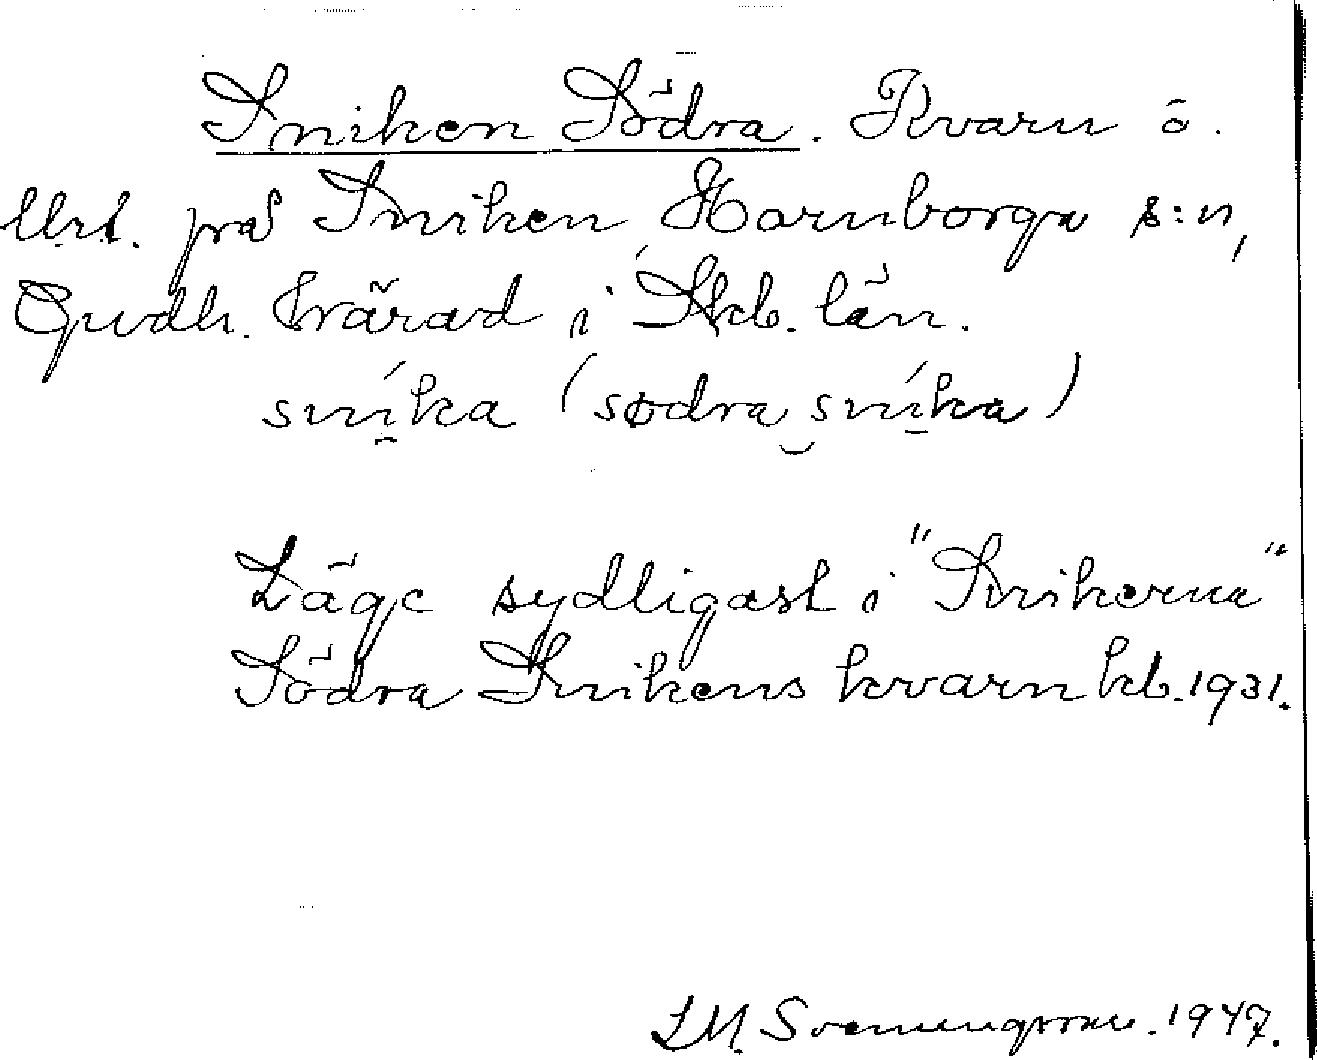 Sniken Södra. Kvarn ö.
lht. på Sniken, Hornborga s:n,
Gudh. härad i Skb. län.
sníka (sødra sníka)
Läge sydligast i "Snikerna"
Södra Snikens kvarn kb. 1931.
SM Svenungsson. 1947.